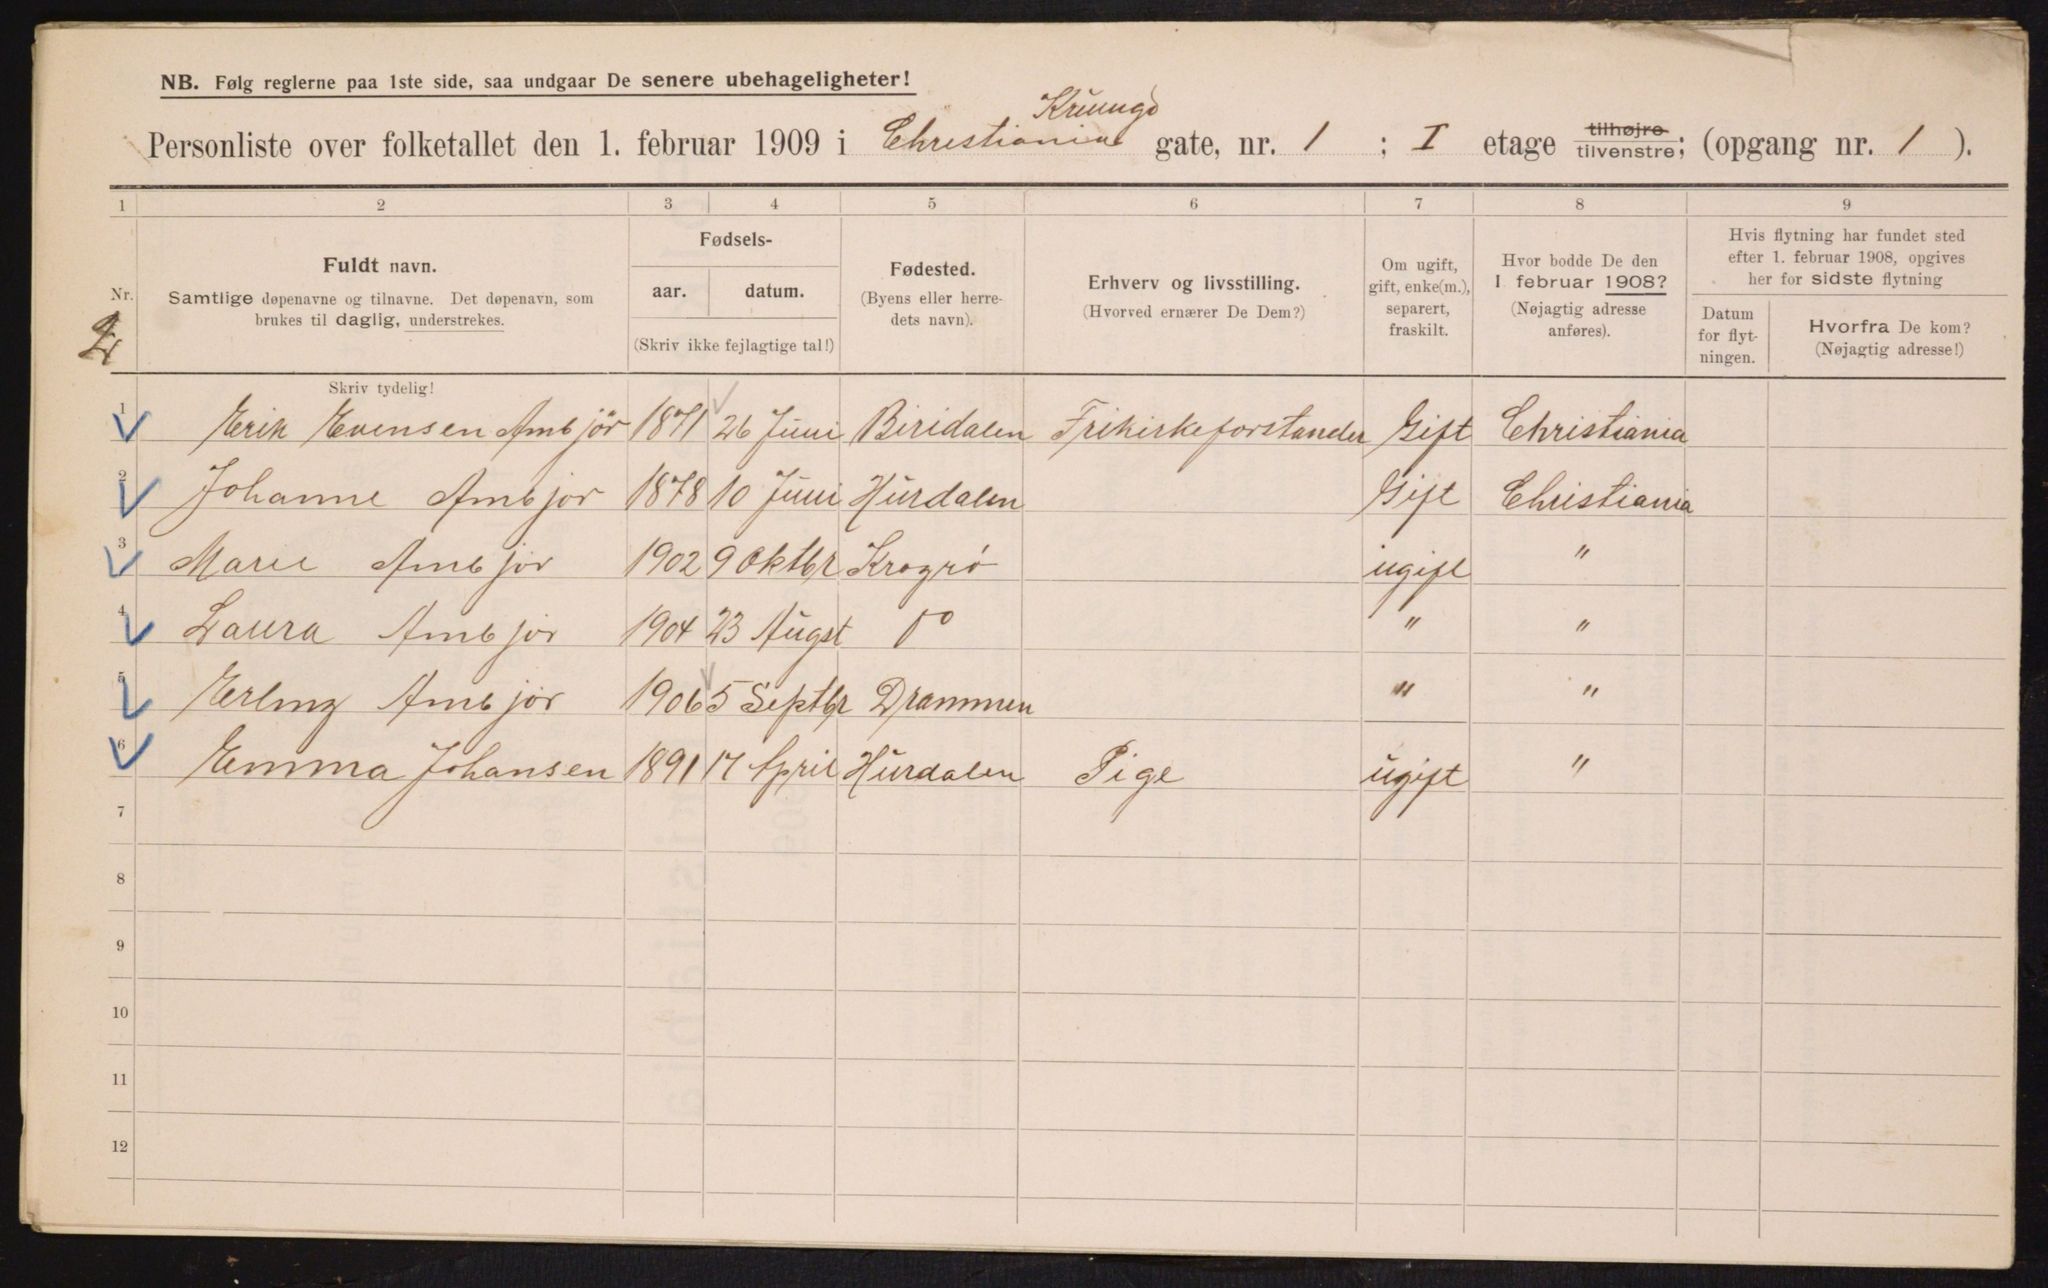 NB. Følg reglerne paa 1ste side, saa undgaar De senere ubehageligheter!
Personliste over folketallet den 1. februar 1909 i Christiania gate, nr. 1 ; I etage tilhøjre tilvenstre; (opgang nr. 1 ).
1 2 3 4 5 6 7 8 9
Nr.
Fuldt navn.
Samtlige døpenavne og tilnavne. Det døpenavn, som
brukes til daglig, understrekes.
Fødsels-
aar. datum.
(Skriv ikke fejlagtige tal!)
Fødested.
(Byens eller herre-
dets navn).
Erhverv og livsstilling.
(Hvorved ernærer De Dem?)
Om ugift,
gift, enke(m.),
separert,
fraskilt.
Hvor bodde De den
1 februar 1908?
(Nøjagtig adresse
anføres).
Hvis flytning har fundet sted
efter 1. februar 1908, opgives
her for sidste flytning
Datum
for flyt-
ningen.
Hvorfra De kom?
(Nøjagtig adresse!)
Skriv tydelig!
1 Erik Evensen Ambjör 1871 26 Juni Biridalen Frikirkeforstander Gift Christiania
2 Johanne Ambjor 1878 10 Juni Hurdalen Gift Christiania
3 Marie Ambjor 1902 9 Oktbr Kragrø ugift "
4 Laura Ambjor 1904 23 Augst Do " "
5 Erling Ambjor 1906 5 Septbr Drammen " "
6 Emma Johansen 1891 17 April Hurdalen Pige ugift "
7
8
9
10
11
12